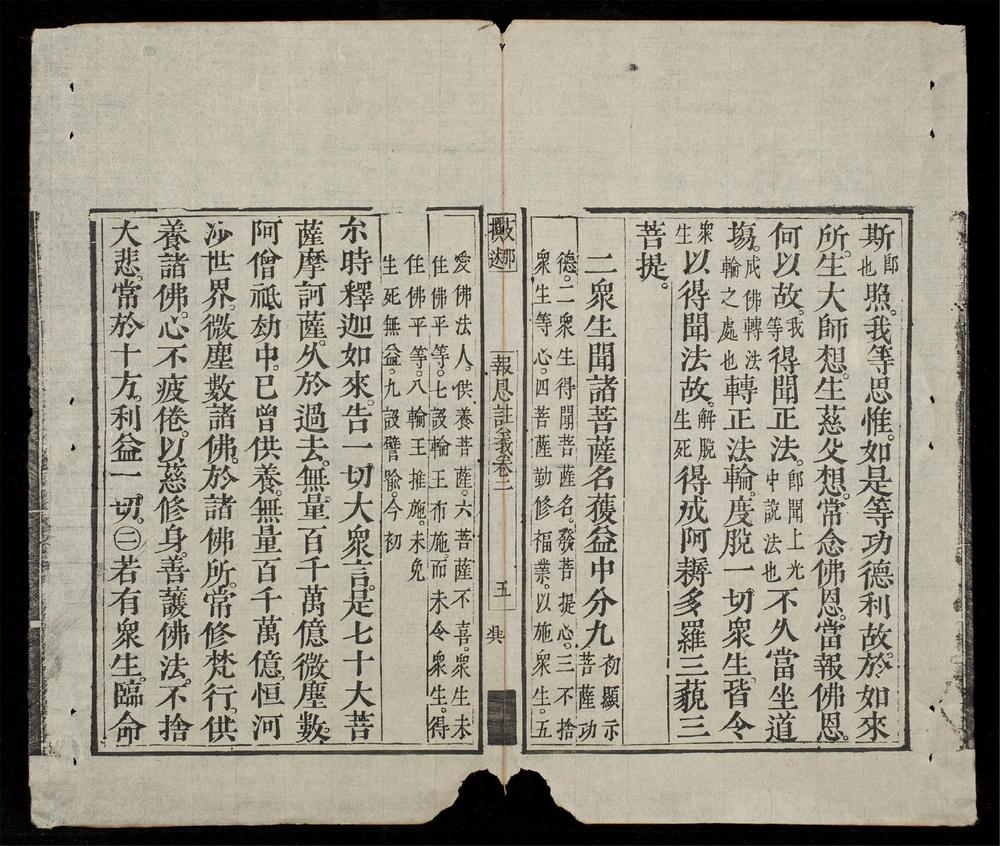 斯即也照我等思惟如是等功德利故於如來
所生大師想生慈父想常念佛恩當報佛恩
何以故我等得聞正法即聞上光中說法也不久當坐道
塲成佛轉法輪之處也轉正法輪度脫一切衆生皆令
衆生以得聞法故解脫生死得成阿耨多羅三藐三
菩提
二衆生聞諸菩薩名獲益中分九初顯示菩薩功
德二衆生得聞菩薩名發菩提心三不捨
衆生等心四菩薩勤修福業以施衆生五
報恩註義卷二 五
愛佛法人供養菩薩六菩薩不喜衆生未
住佛平等七設輪王布施而未令衆生得
住佛平等八輪王推施未免
生死無益九設譬喻今初
尒時釋迦如來告一切大衆言是七十大菩
薩摩訶薩久於過去無量百千萬億微塵數
阿僧祗劫中已曾供養無量百千萬億恒河
沙世界微塵數諸佛於諸佛所常修梵行供
養諸佛心不疲倦以慈修身善護佛法不捨
大悲常於十方利益一切㊂若有衆生臨命